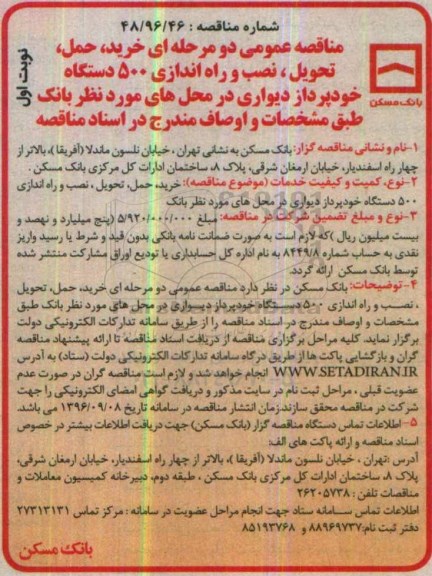 شماره مناقصه : ۴۸/۹۶/۴۶
نوبت اول
مناقصه عمومی دو مرحله ای خرید، حمل،
تحویل ، نصب و راه اندازی ۵۰۰ دستگاه
خودپرداز دیواری در محل های مورد نظر بانک
طبق مشخصات و اوصاف مندرج در اسناد مناقصه
بانک مسکن
۱-نام و نشانی مناقصه گزار: بانک مسکن به نشانی تهران ، خیابان نلسون ماندلا (آفریقا)، بالاتر از
چهار راه اسفندیار، خیابان ارمغان شرقی، پلاک ۸، ساختمان ادارات کل مرکزی بانک مسکن .
۲-نوع، کمیت و کیفیت خدمات (موضوع مناقصه): خرید، حمل، تحویل ، نصب و راه اندازی
۵۰۰ دستگاه خودپرداز دیواری در محل های مورد نظر بانک
۳-نوع و مبلغ تضمین شرکت در مناقصه: مبلغ ۵/۹۲۰/۰۰۰/۰۰۰ (پنج میلیارد و نهصد و
بیست میلیون ریال )که لازم است به صورت ضمانت نامه بانکی بدون قید و شرط یا رسید واریز
نقدی به حساب شماره ۸۴۴۹/۸ به نام اداره کل حسابداری یا تودیع اوراق مشارکت منتشر شده
توسط بانک مسکن ارائه گردد.
۴-توضیحات: بانک مسکن در نظر دارد مناقصه عمومی دو مرحله ای خرید، حمل، تحویل
، نصب و راه اندازی ۵۰۰ دستگاه خودپرداز دیواری در محل های مورد نظر بانک طبق
مشخصات و اوصاف مندرج در اسناد مناقصه را از طریق سامانه تدارکات الکترونیکی دولت
برگزار نماید. کلیه مراحل برگزاری مناقصه از دریافت اسناد مناقصه تا ارائه پیشنهاد مناقصه
گران و بازگشایی پاکت ها از طریق درگاه سامانه تدارکات الکترونیکی دولت (ستاد) به آدرس
WWW.SETADIRAN.IR انجام خواهد شد و لازم است مناقصه گران در صورت عدم
عضویت قبلی ، مراحل ثبت نام در سایت مذکور و دریافت گواهی امضای الکترونیکی را جهت
شرکت در مناقصه محقق سازند.زمان انتشار مناقصه در سامانه تاریخ ۱۳۹۶/۰۹/۰۸ می باشد.
۵-اطلاعات تماس دستگاه مناقصه گزار (بانک مسکن) جهت دریافت اطلاعات بیشتر در خصوص
اسناد مناقصه و ارائه پاکت های الف:
آدرس :تهران ، خیابان نلسون ماندلا (آفریقا )، بالاتر از چهار راه اسفندیار، خیابان ارمغان شرقی،
پلاک ۸، ساختمان ادارات کل مرکزی بانک مسکن ، طبقه دوم، دبیرخانه کمیسیون معاملات و
مناقصات تلفن : ۲۶۲۰۵۷۳۸
اطلاعات تماس سامانه ستاد جهت انجام مراحل عضویت در سامانه : مرکز تماس ۲۷۳۱۳۱۳۱
دفتر ثبت نام:۸۸۹۶۹۷۳۷ و ۸۵۱۹۳۷۶۸
بانک مسکن